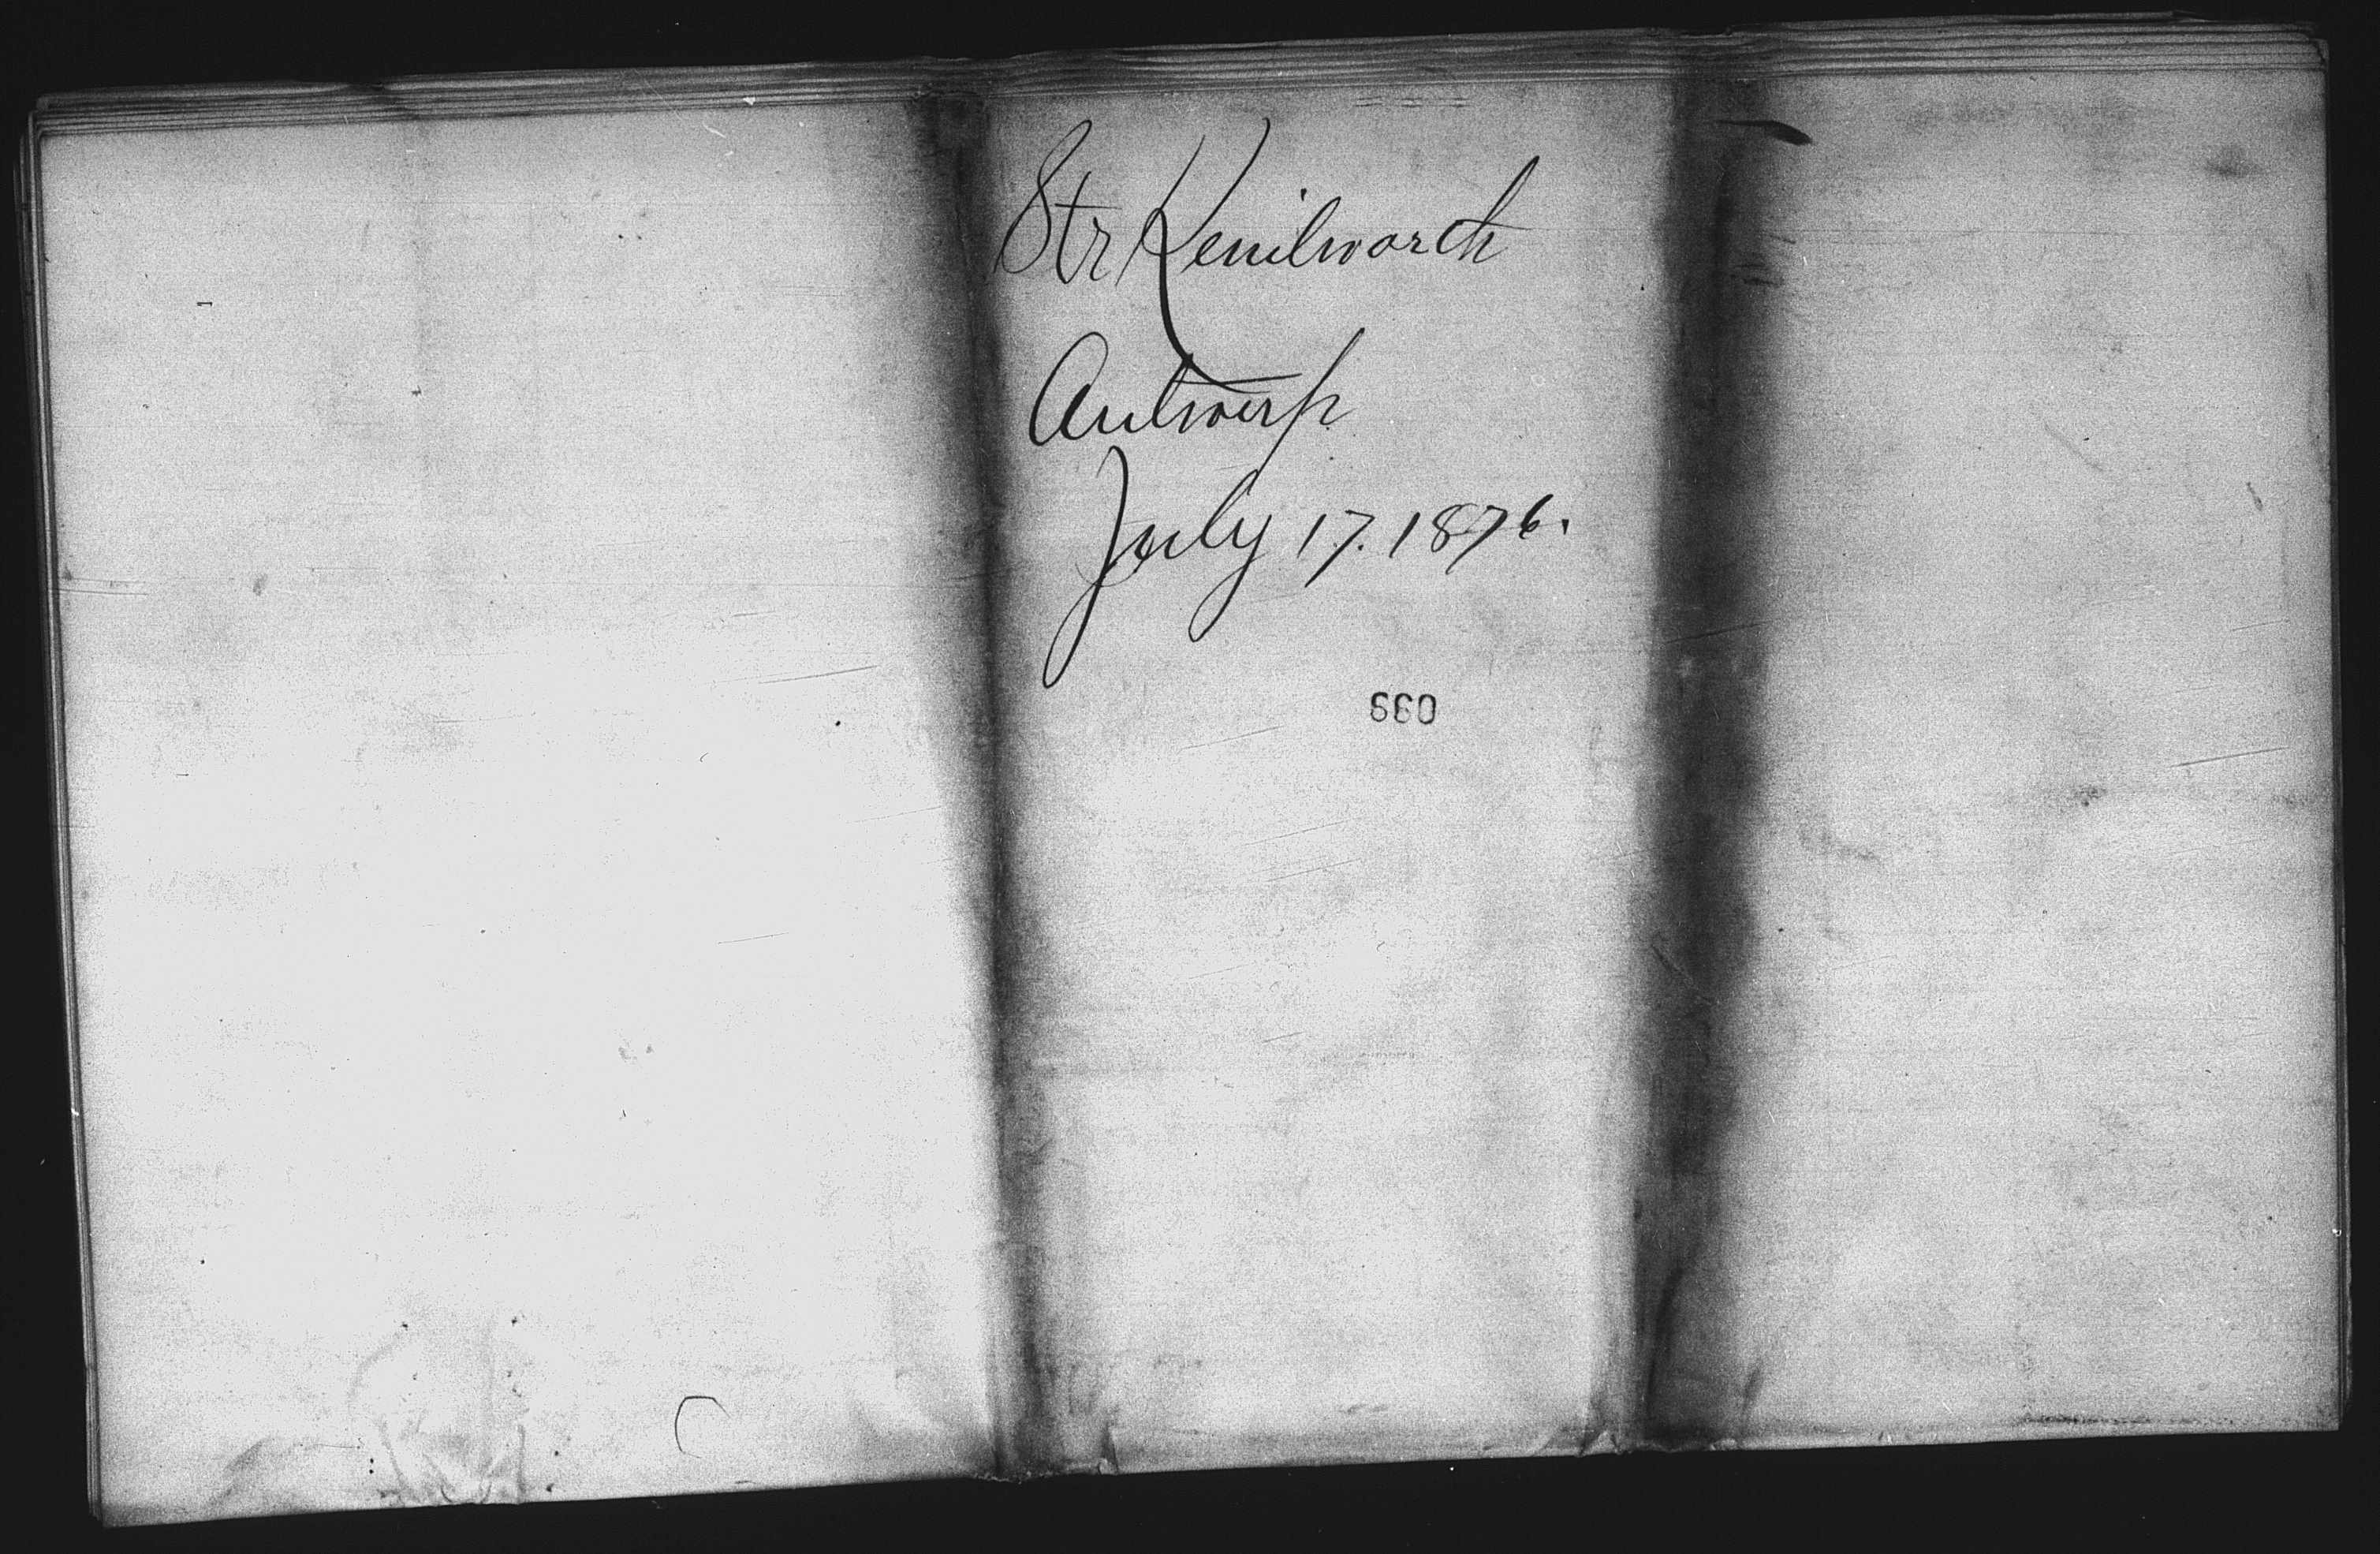 Str Kenilworth
Antwerp
July 17. 1876.